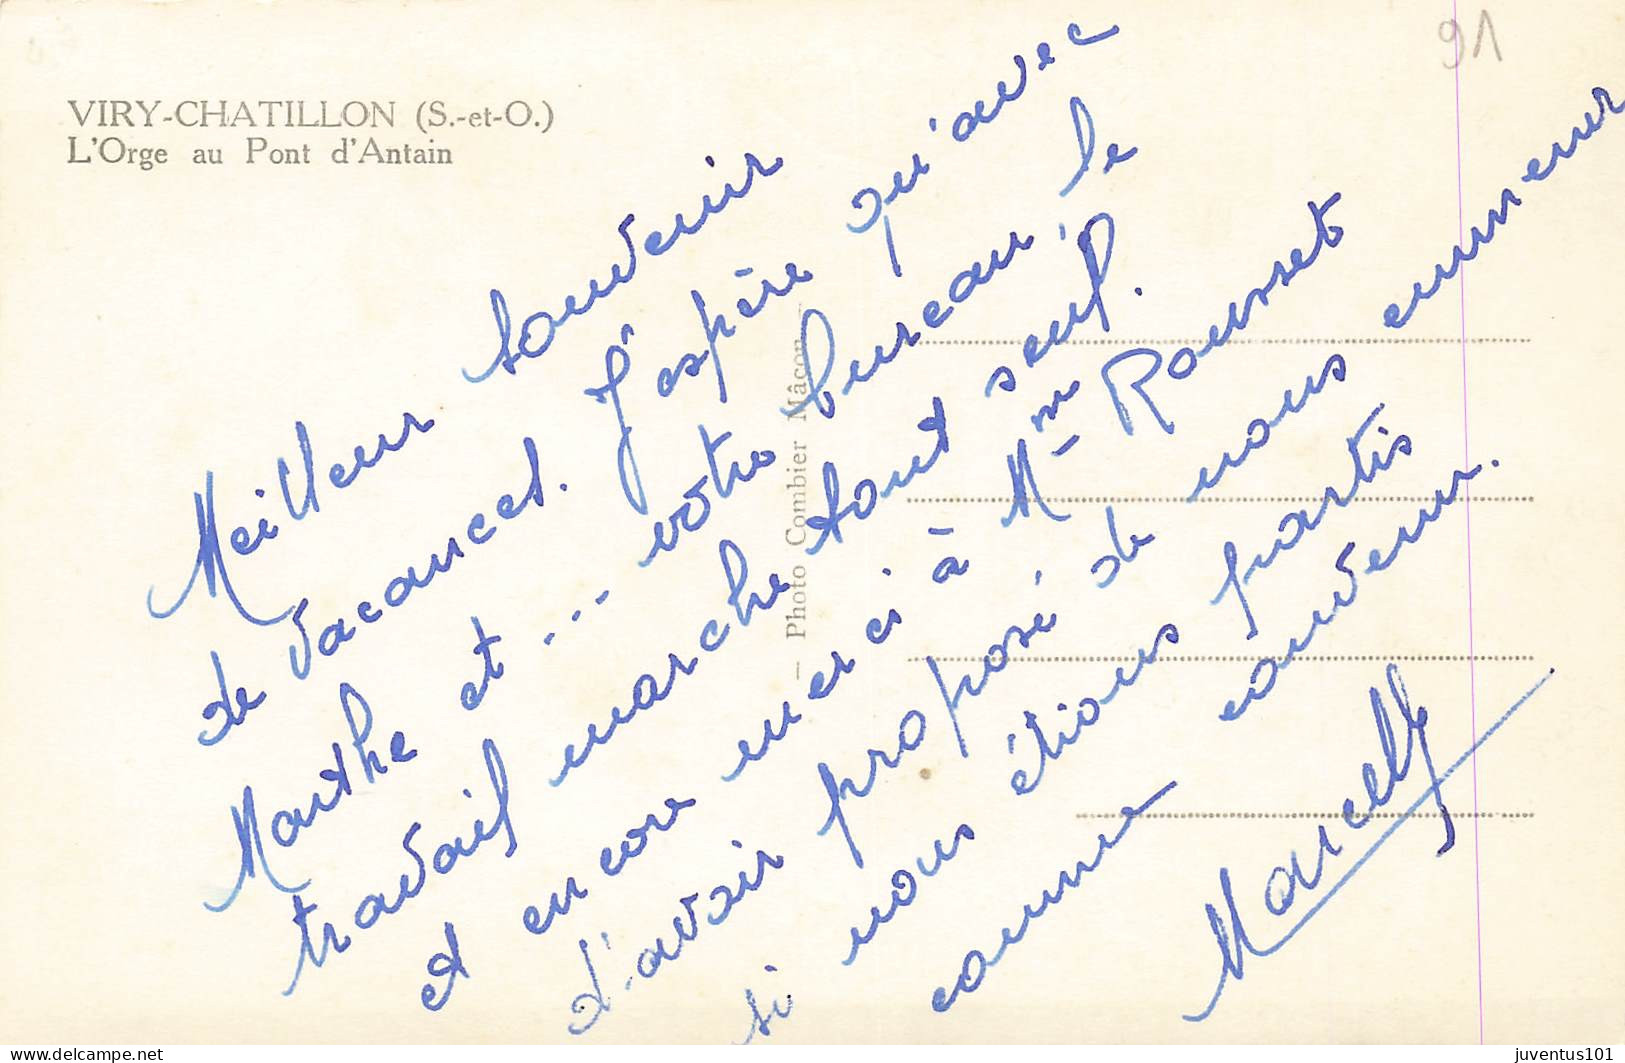 91
VIRY-CHATILLON (S.-et-O.)
L'Orge au Pont d'Antain
Meilleur souvenir
de vacances. J'espère qu'avec
Marthe et ... votre bureau le
travail marche tout seul.
et encore merci à Mme Rousset
d'avoir proposé de nous emmener
si nous étions partis
comme convenu.
Marcelle
— Photo Combier Mâcon
juventus101